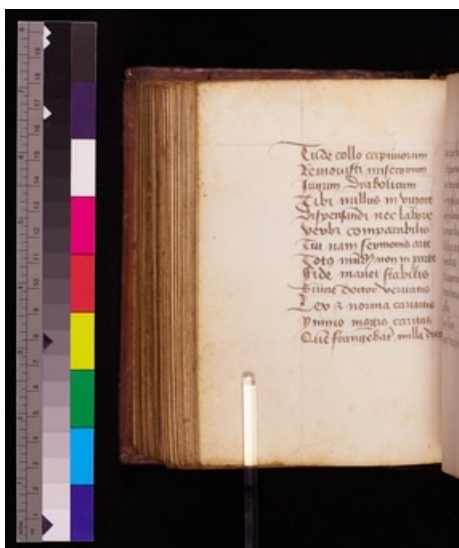 Tu de collo captivorum
Removisti miserorum
Jugum Diabolicum
Tibi nullus in vigore
Dispensandi nec labore
verbi comparabilis
Tui nam sermonis arte
Toto mūdo non in parte
fide manet stabilis
Divine doctor veritatis
Lex & norma caritatis
caritas
Que frangebat nulla